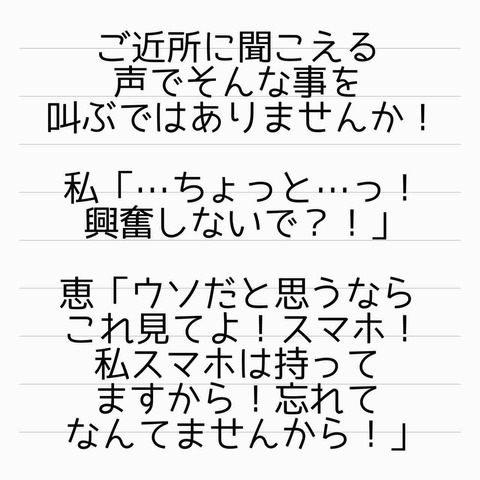 ご近所に聞こえる
声でそんな事を
叫ぶではありませんか！
私「…ちょっと…っ！
興奮しないで？！」
恵「ウソだと思うなら
これ見てよ！スマホ！
私スマホは持って
ますから！忘れて
なんてませんから！」